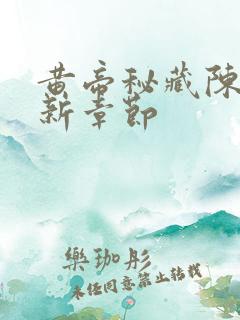 黄帝秘藏陳
新章節
樂珈彤
未经同意禁止转载